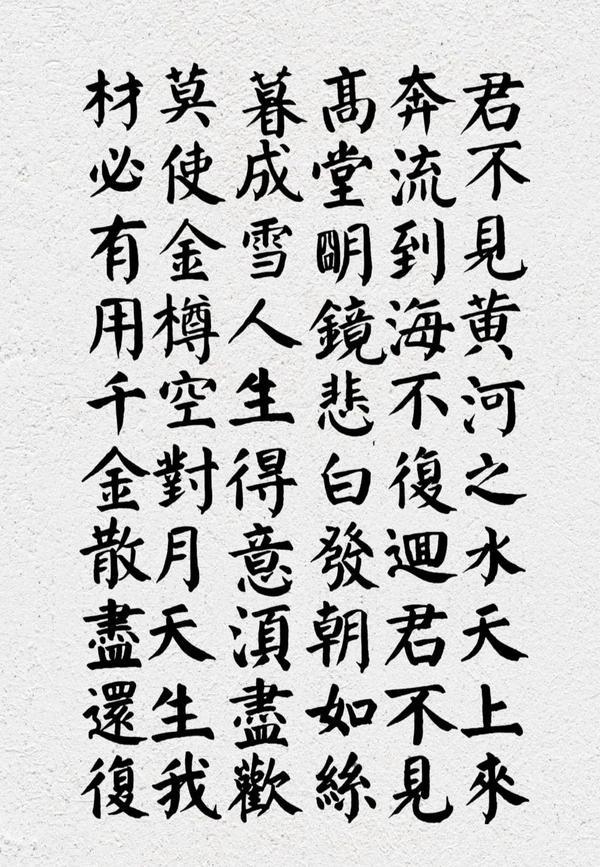 君不見黄河之水天上來
奔流到海不復迴君不見
髙堂明鏡悲白發朝如絲
暮成雪人生得意須盡歡
莫使金樽空對月天生我
材必有用千金散盡還復